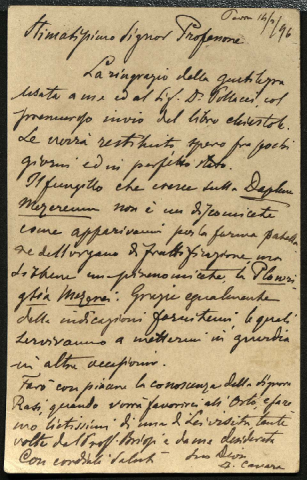 Pavia 14/2/96
Stimatissimo Signor Professore
La ringrazio della gentilezza
usata a me ed al Sig. D. Pollacci, col
premuroso invio del libro chiestole.
Le verrà restituito, spero fra pochi
giorni ed in perfetto stato.
Il funghetto che cresce sulla Daphne
Mezereum non è un discomicete
come apparivami per la forma
ne dell'organo di fruttificazione, ma
un pirenomicete, la Plowri-
ghtia Mezerei. Grazie egualmente
delle indicazioni fornitemi le quali
serviranno a mettermi in guardia
in altre occasioni.
Farò con piacere la conoscenza della Signora
Rasi, quando vorrà favorirci all'Orto, e fare
mo lietissimi di una di Lei visita, tante
volte dal Prof. Briosi e da me desiderata
Con cordiali saluti Suo Dev.
F. Cavara